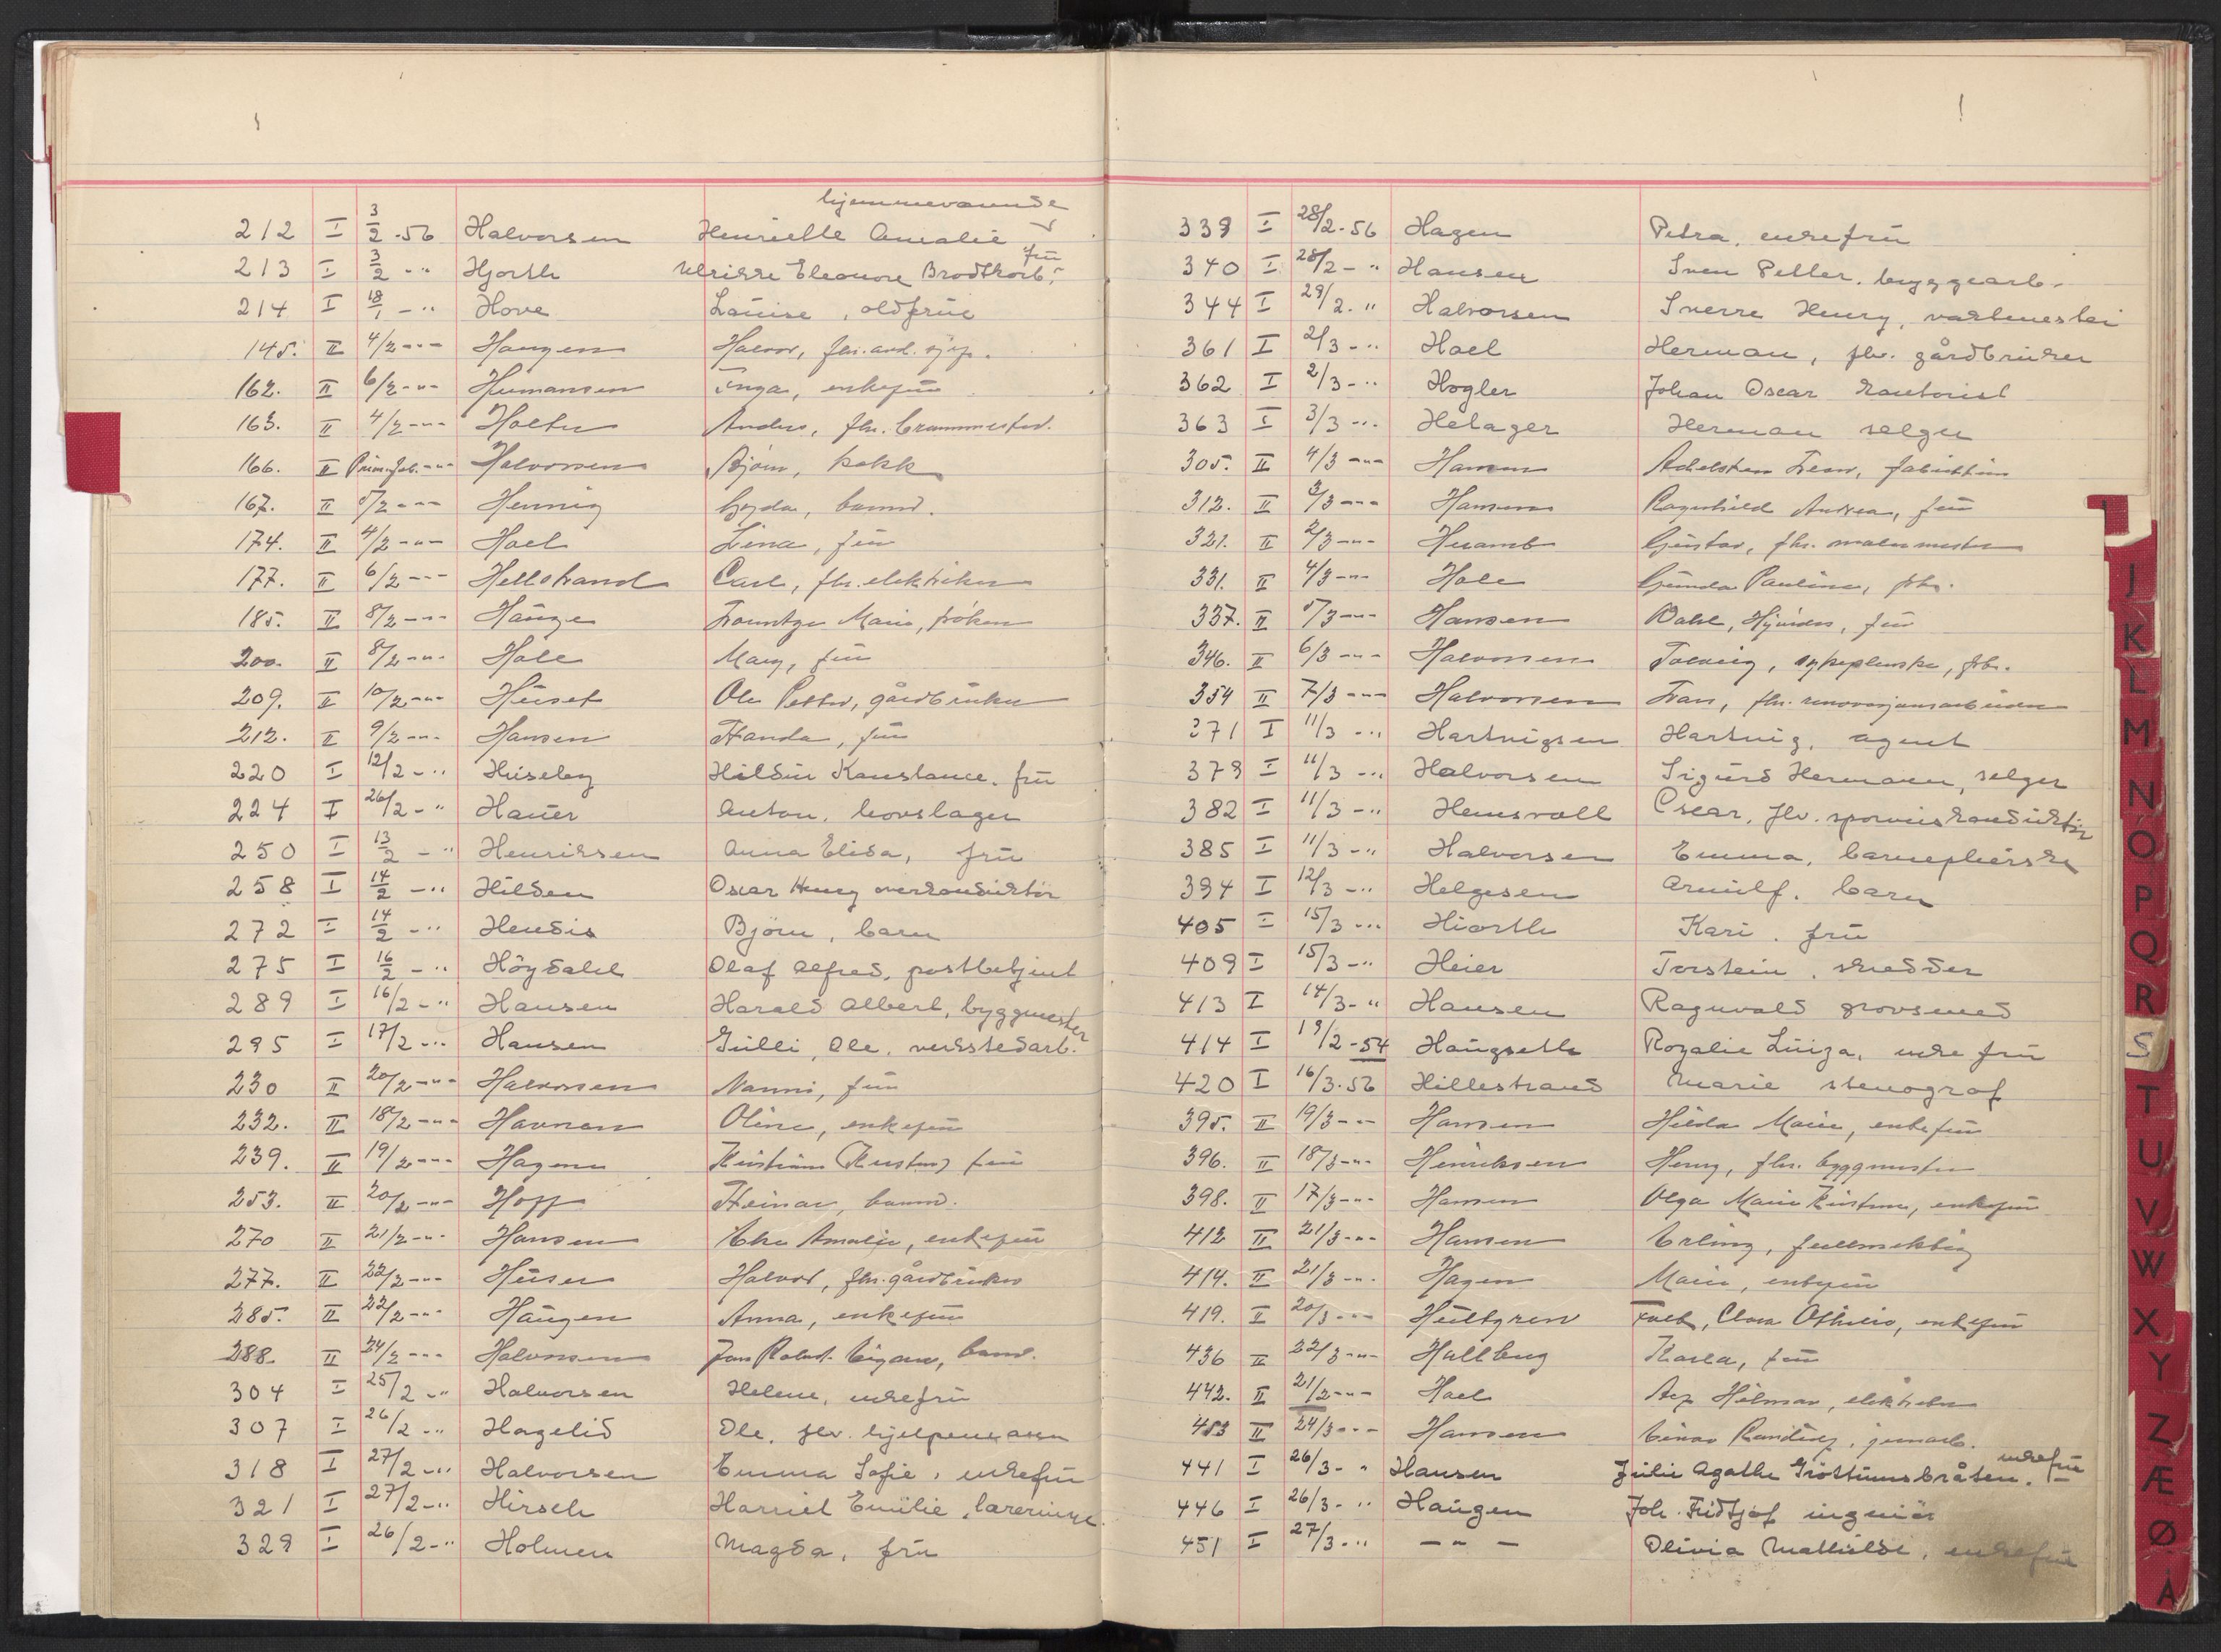 hjemmeværende
212 I 3/2 -56 Halvorsen Henrielle Amalie
213 I 3/2 - " Hjorth Ulrikke Eleonore Brodtkorb. frü
214 I 18/1 - " Hove Louise, oldfrue
145. II 4/2 - " - Haugen Halvor, fhv.
162. II 6/2 - " - Hermansen Inga, enkefrü
163. II 4/2 - " - Holter Anders, fhv. brannmester.
166. II Primo feb. - " - Halvorsen Bjørn, kokk
167. II 5/2 - " - Hennig barn
174. II 4/2 - " - Hoel Lina, frü
177. II 6/2 - " - Hellstrand Carl, fhv. elektriker
185. II 8/2 - " - Hauge Marie, frøken
200. II 8/2 - " - Hole Mary, frü
209. II 10/2 - " - Huset Ole Petter, gårdbruker
212. II 9/2 - " - Hansen Handa, frü
220 I 12/2 - " Huseby Hildur Konstance. frü
224 I 26/2 - " Hauer Anton, hovslager
250 I 13/2 - " Henriksen Anna Elida, frü
258 I 14/2 - " Hilden Oscar Henry overkonduktör
272 I 14/2 - " Hendis Björn, barn
275 I 16/2 - " Höydahl Olaf Alfred, postbetjent
289 I 16/2 - " Hansen Harald Albert, byggmester
295 I 17/2 - " Hansen Gulli, Ole. verkstedarb.
230 II 20/2 - " - Halvorsen Nanni, frü
232. II 18/2 - " - Havnen Oline, enkefrü
239. II 19/2 - " - Hagen Kristiane frü
253. II 20/2 - " - Hoff Steinar, barn.
270 II 21/2 - " - Hansen Amalie, enkefrü
277. II 22/2 - " - Huser Halvor, fhv. gårdbruker
285. II 22/2 - " - Haugen Anna, enkefrü
288. II 24/2 - " - Halvorsen Jan Robert barn.
304 I 25/2 - " Halvorsen Helene, enkefrü
307 I 26/2 - " Hagelid Ole, fhv. hjelpemann
318 I 27/2 - " Halvorsen Emma Sofie, enkefrü
321 I 27/2 - " Hirsch Harriet Emilie, lærerinne.
329 I 26/2 - " Holmen Magda, frü
339 I 28/2 -56 Hagen Petra, enkefrü
340 I 28/2 - " Hansen Sven Petter, bryggearb.
344 I 29/2. " Halvorsen Sverre Henry,
361 I 2/3 - " Hoel Herman, fhv. gårdbruker
362 I 2/3 - " Hogler Johan Oscar kontorist
363 I 3/3 - " Helager Herman selger
305. II 4/3 - " - Hansen Adelsten
312. II 3/3 - " - Hansen Ragnhild Andrea, frü
321. II 2/3 - " - Hvamb Gustav, fhv. malermester
331. II 4/3 - " - Hole Gunda Pauline, frk.
337. II 5/3 - " - Hansen Dahl, Hjördis, frü
346. II 6/3 - " - Halvorsen Solveig, sykepleierske, frk.
354 II 7/3 - " - Halvorsen fhv. renovasjonsarbeider
371 I 11/3 - " Hartvigsen Hartvig, agent
379 I 11/3 - " Halvorsen Sigurd Hermann, selger
382 I 11/3 - " Hemsvoll Oscar, fhv. sporveiskonduktör
385 I 11/3 - " Halvorsen Emma, barnepleierske
394 I 12/3 - " Helgesen Arnulf. barn
405 I 15/3 - " Hiorth Kari. frü
409 I 15/3 - " Heier Torstein, skredder
413 I 14/3 - " Hansen Ragnvald grovsmed
414 I 19/2 -54 Haugseth Rozalie Luiza, enkefrü
420 I 16/3. 56 Hillestrand Marie stenograf
395. II 19/3 - " - Hansen Hilda Marie, enkefrü
396. II 18/3 - " - Henriksen Henry, fhv. byggmester
398. II 17/3 - " - Hansen Olga Marie Kristine, enkefrü
412 II 21/3 - " - Hansen Erling, fullmektig
414. II 21/3 - " - Hagen Marie, enkefrü
419. II 20/3 - " - Hultgren Clara Othilie, enkefrü
436 II 22/3 - " - Hallberg Thora, frü
442. II 21/2 - " - Hoel Hilmar, elektriker
453 II 24/3 - " - Hansen Einar jernarb.
441 I 26/3 - " Hansen Julie Agathe Gröttumsbråten. enkefrü
446 I 26/3 - " Haugen Joh. Fridtjof ingeniör
451 I 27/3 - " - " - Olivia Mathilde, enkefrü
J
K
L
M
N
O
P
Q
R
S
T
U
V
W
X
Y
Z
Æ
Ø
Å